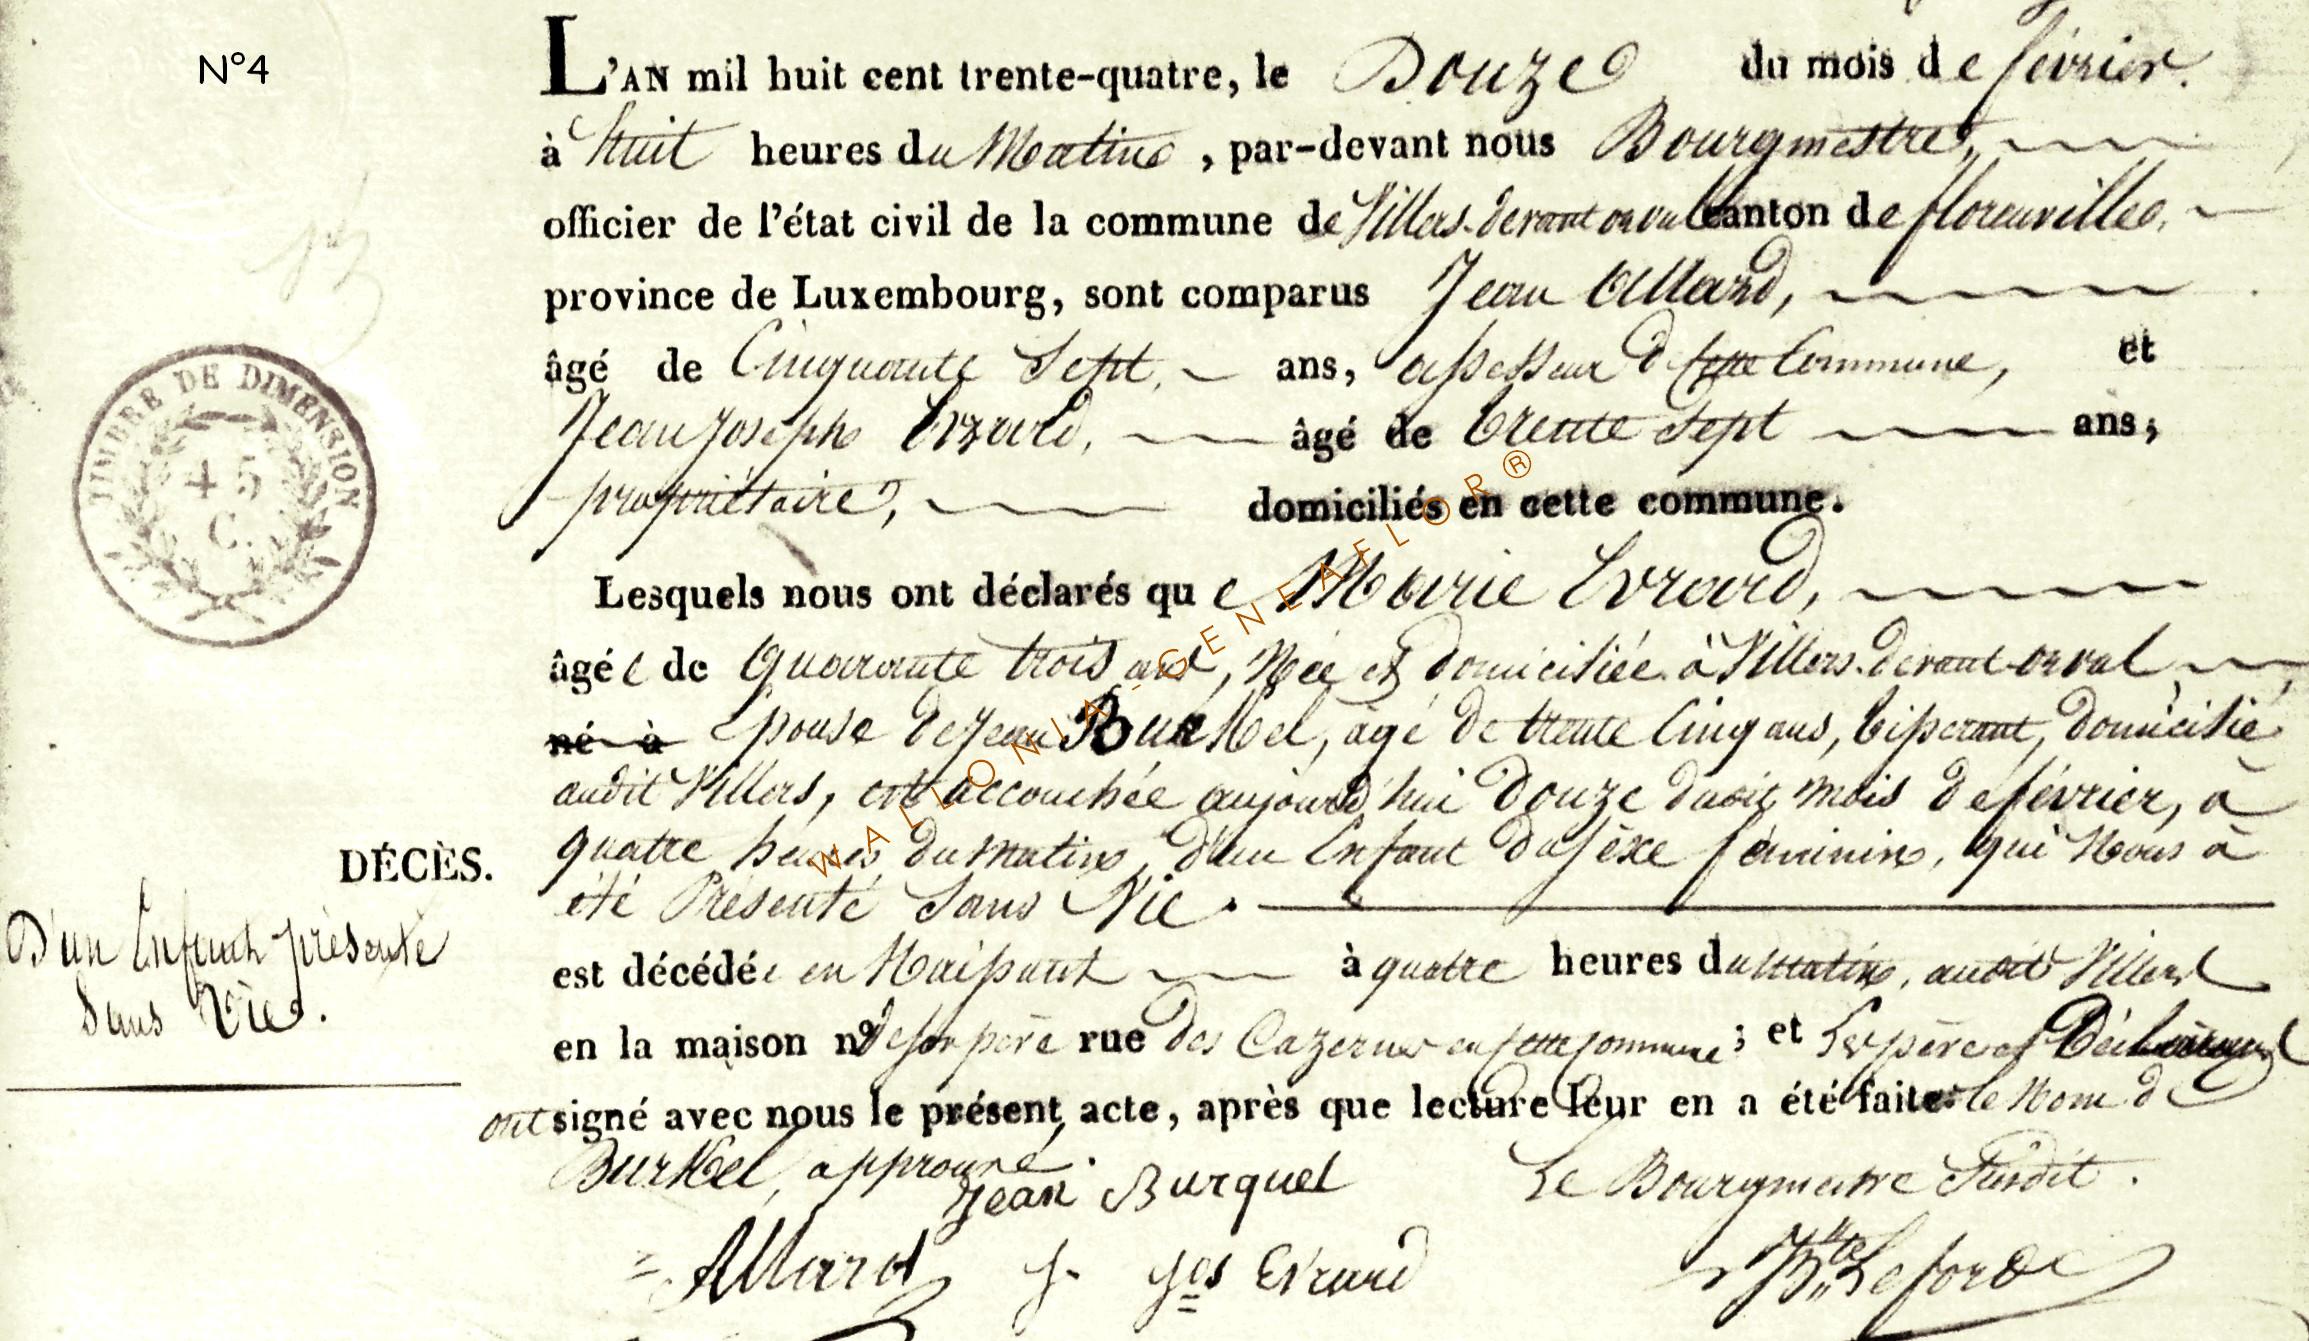 N°4
L'AN mil huit cent trente-quatre, le Douze du mois de février.
à huit heures du Matin, par-devant nous Bourgmestre,
officier de l'état civil de la commune de Villers-devant orval canton de florenville,
province de Luxembourg, sont comparus Jean Allard,
âgé de Cinquante Sept, ans, assesseur de cette Commune, et
Jean Joseph Evrard, âgé de trente Sept ans,
propriétaire, domiciliés en cette commune.
Lesquels nous ont déclarés que Marie Evrard,
âgée de Quarante trois ans, Née et domiciliée à Villers-devant-orval
né à Epouse de Jean Burkel, âgé de trente Cinq ans, tisserant, domicilié
audit Villers, est accouchée aujourd'hui Douze dudit mois de février, à
quatre heures du matin, d'un Enfant du sexe féminin, qui Nous à
été Présenté Sans Vie.
est décédée en Naissant à quatre heures du matin, audit Villers
en la maison n° de son père rue des Cazernes en cette commune; et Les père et Déclarans
ont signé avec nous le présent acte, après que lecture leur en a été faite. le Nom de
Burkel, approuvé.
Jean Burquel
Le Bourgmestre Susdit.
Allard J. Jos Evrard
TIMBRE DE DIMENSION
45
C.
DÉCÈS.
D'un Enfant présenté
Sans Vie.
WALLONIA-GENEAFLOR®